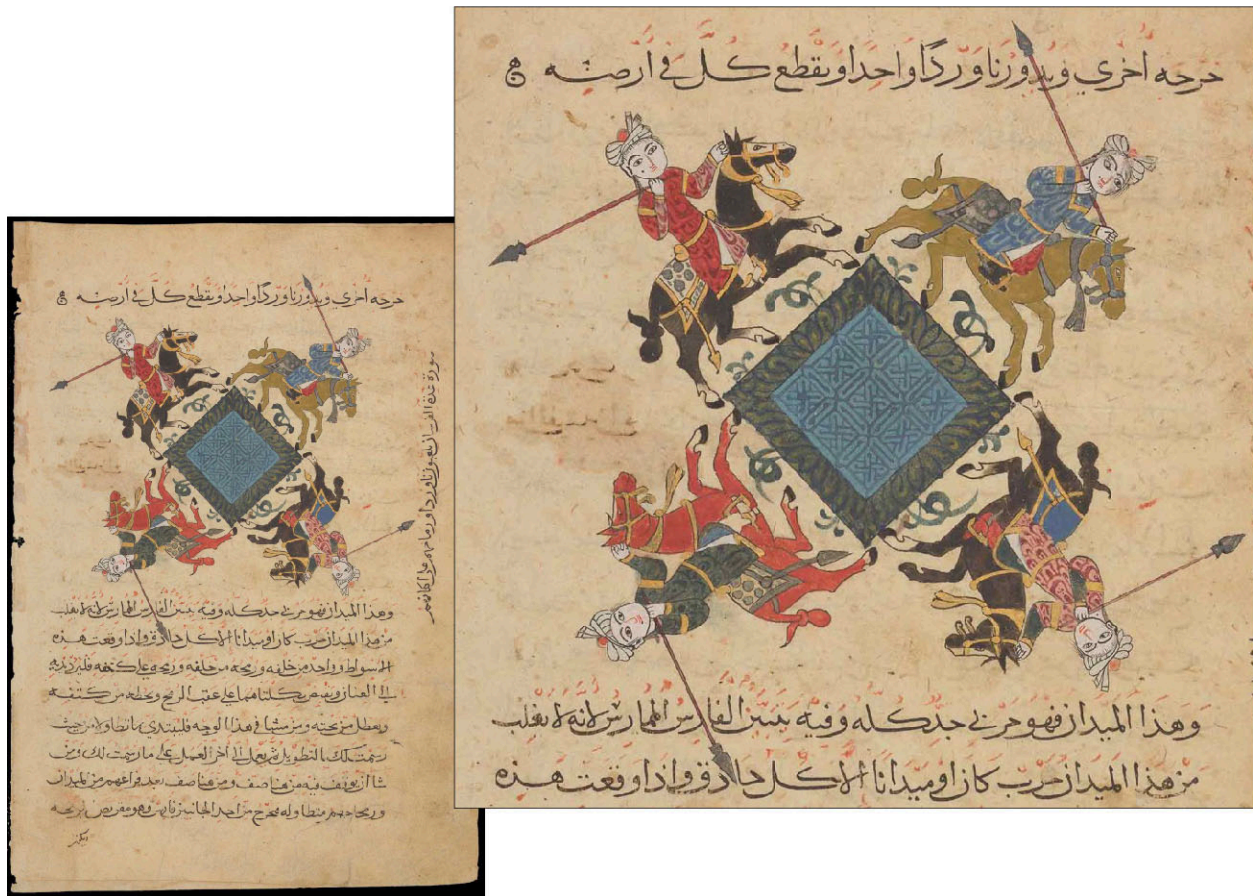 خرجه أخري ويدورنا وردًا واحدا ويقطع كل في ارضه
صورة هذه الفرسان ورماحهم على اكتافهم
وهذا الميدان فهو حربي جد كله وفيه يتبين الفارس الممارس لانه لا يغلب
من هذا الميدان حرب كان او ميدانا الا كل حاذق واذا وقعت هذه
الاسواط وواحد من خلفه ورمحه من خلفه ورمحه على كتفه فليرد يده
الى العنان ويقبض بكلتاهما على عقب الرمح ويحطه من كتفه
ويعطل من تحته ومن شا في هذا الوجه فليبتدي من حيث
رسمت لك بالتطويل ثم يعمل الى اخر العمل على ما رسمت لك ومن
شا ان يوقف فيه مناصف بعد فراغهم من الميدان
ورماحهم متطاوله من احد الجانبين وهو برمحه
خرجه أخري ويدورنا وردًا واحدا ويقطع كل في ارضه
وهذا الميدان فهو حربي جد كله وفيه يتبين الفارس الممارس لانه لا يغلب
من هذا الميدان حرب كان او ميدانا الا كل حاذق واذا وقعت هذه